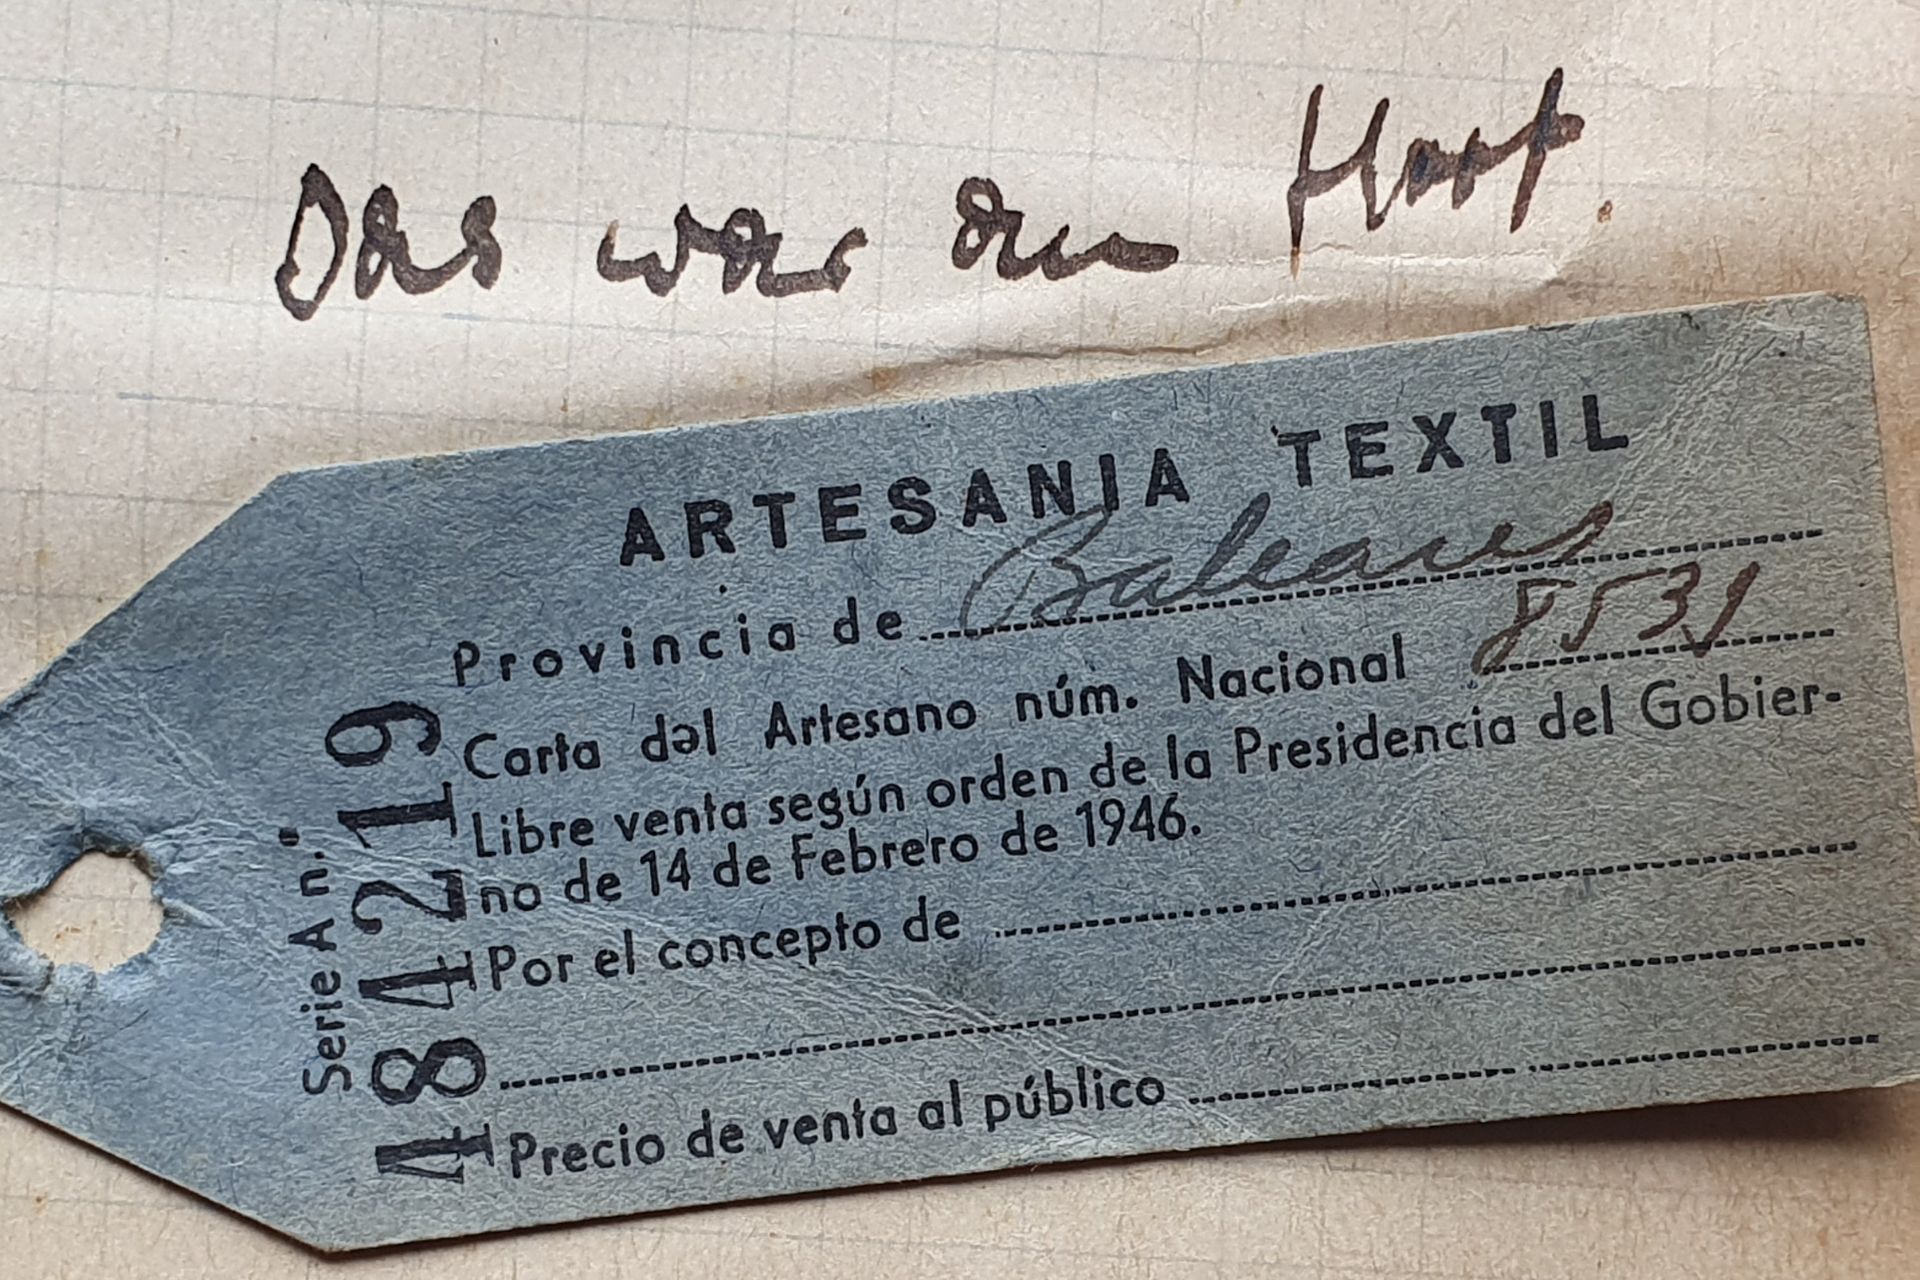 Das war am
ARTESANIA TEXTIL
Provincia de Baleares
Carta del Artesano núm. Nacional 8539
Libre venta según orden de la Presidencia del Gobier-
no de 14 de Febrero de 1946.
Por el concepto de
Precio de venta al público
Serie A n.º
484219